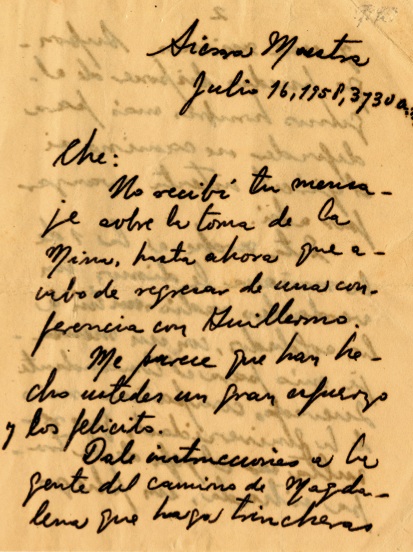 Sierra Maestra
Julio 16, 1958, 3 y 30 a.m.
Che:
No recibí tu mensa-
je sobre la toma de la
Mina, hasta ahora que a-
cabo de regresar de una con-
ferencia con Guillermo.
Me parece que han he-
cho ustedes un gran esfuerzo
y los felicito.
Dale instrucciones a la
gente del camino de Magda-
lena que haga trincheras